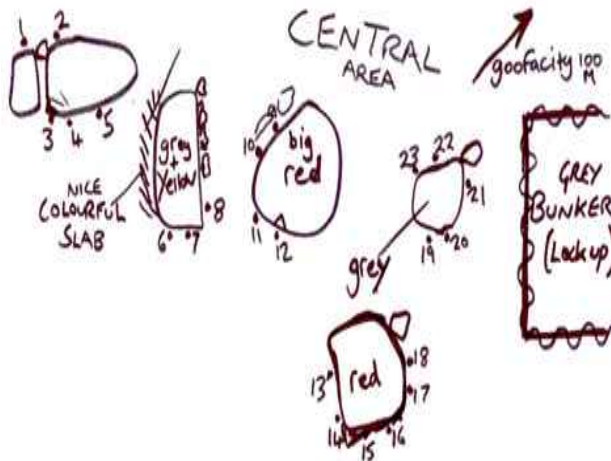 CENTRAL
AREA
goofacity 100
M
1
2
3
4
5
NICE
COLOURFUL
SLAB
grey
+
yellow
6
7
8
9
10
big
red
11
12
grey
23
22
21
20
19
GREY
BUNKER
(Lockup)
red
13
14
15
16
17
18